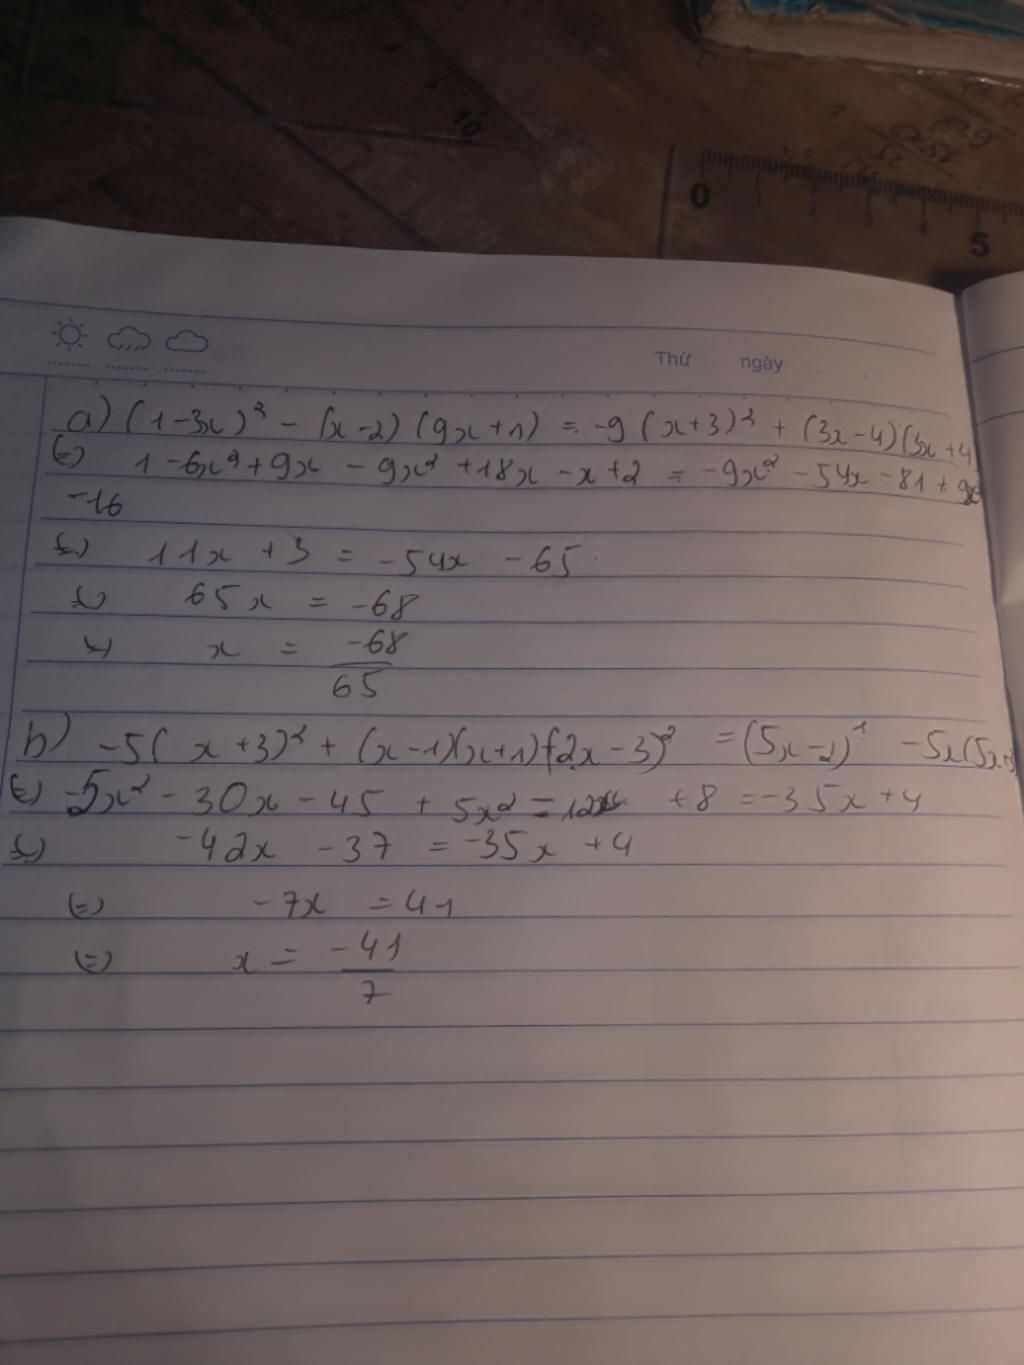 10
0 1 2 3 4 5
Thứ ngày
a) (1-3x)² - (x-2)(9x+1) = -9(x+3)² + (3x-4)(3x+4
(=) 1-6x²+9x - 9x² +18x -x+2 = -9x² - 54x -81 + 9x²
-16
(=) 11x + 3 = -54x - 65
(=) 65x = -68
(=) x = -68/65
b) -5(x+3)² + (x-1)(x+1)+(2x-3)² = (5x-2)² - 5x(5x+3
(=) -5x² - 30x - 45 + 5x² - 12x + 8 = -35x + 4
(=) -42x - 37 = -35x + 4
(=) -7x = 41
(=) x = -41/7